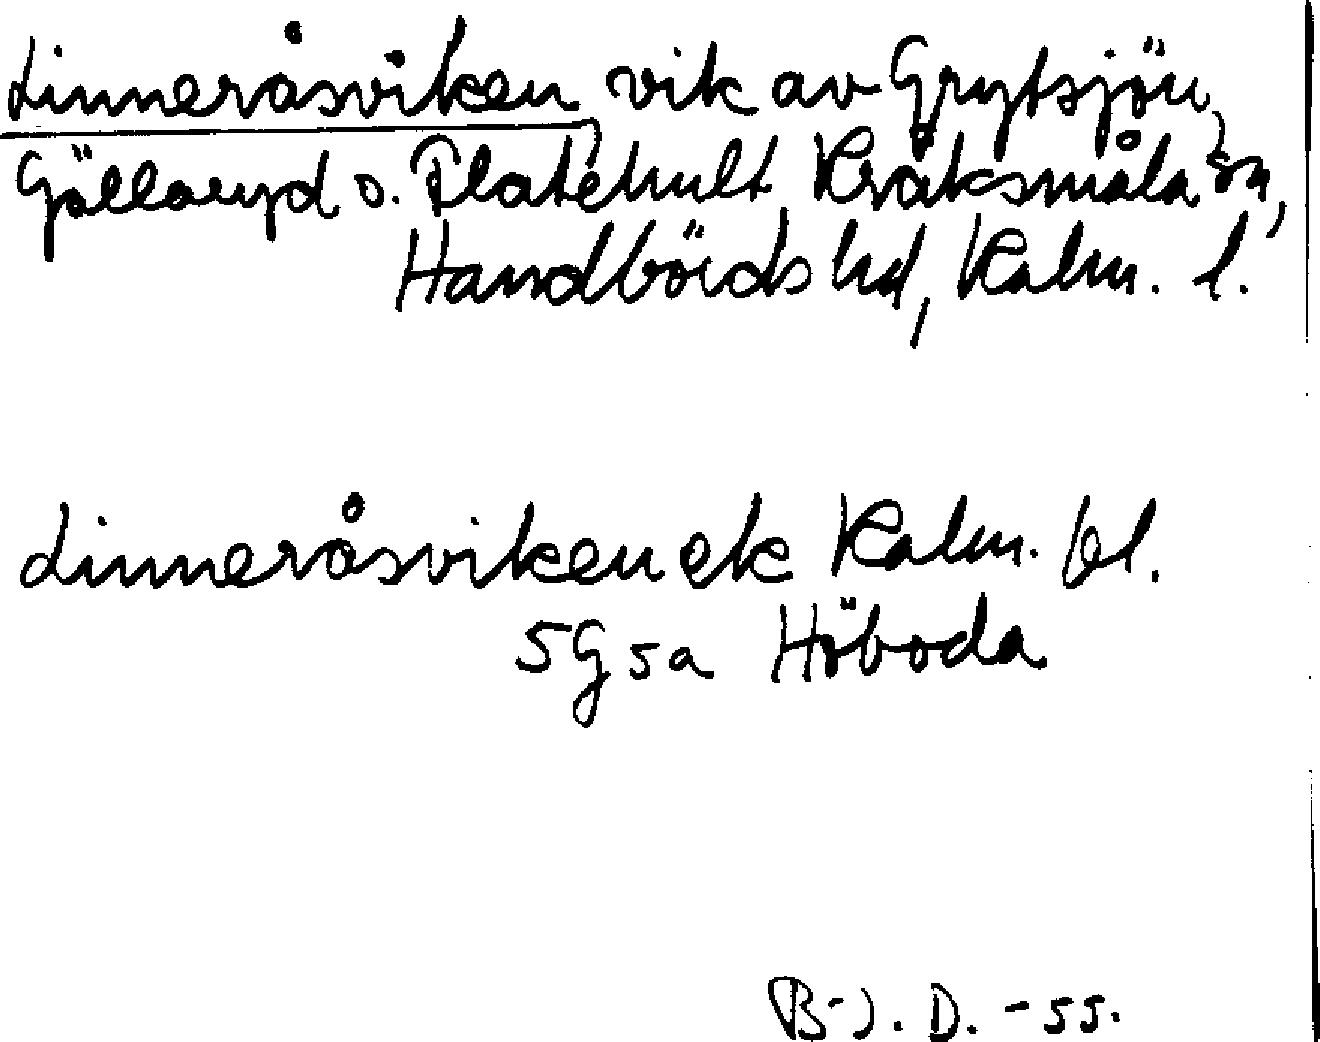 Linneråsviken, vik av Grytsjön,
Gällaryd o. Flatehult Kråksmåla sn,
Handbörds hd, Kalm. l.
Linneråsviken ek Kalm. bl.
5G 5a Höboda
B-J. D. -55.